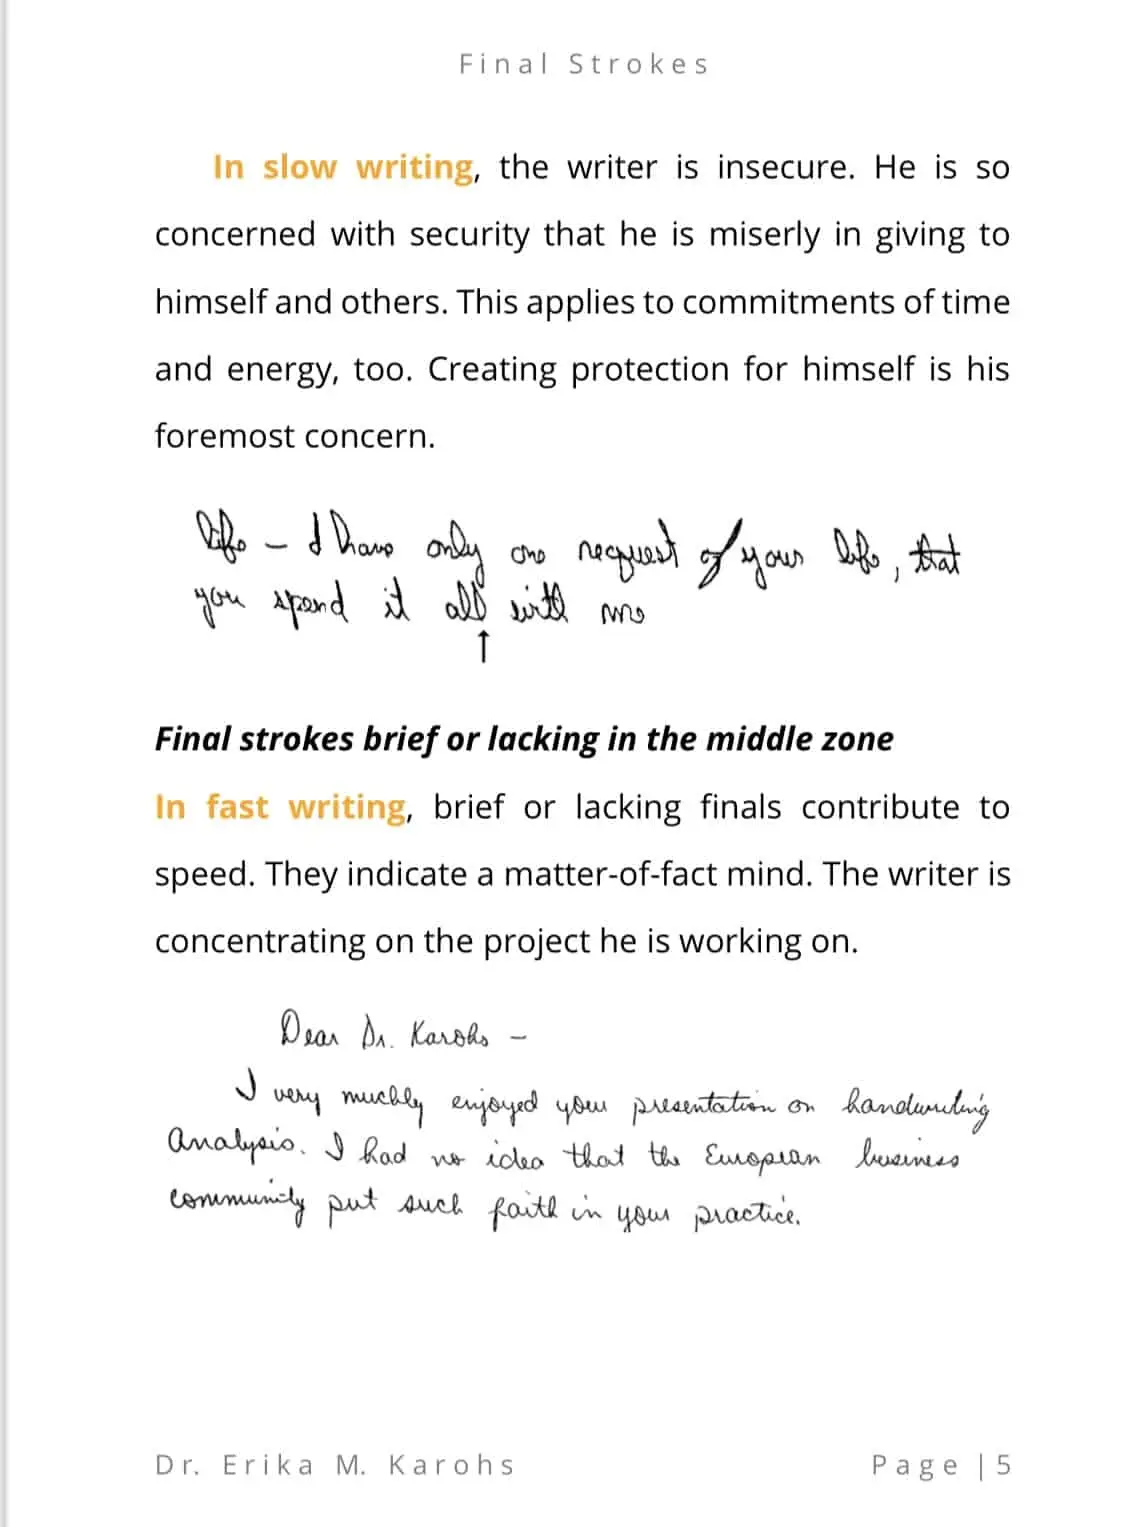 Final Strokes
In slow writing, the writer is insecure. He is so
concerned with security that he is miserly in giving to
himself and others. This applies to commitments of time
and energy, too. Creating protection for himself is his
foremost concern.
life – I have only one request of your life, that
you spend it all with me
↑
Final strokes brief or lacking in the middle zone
In fast writing, brief or lacking finals contribute to
speed. They indicate a matter-of-fact mind. The writer is
concentrating on the project he is working on.
Dear Dr. Karohs –
I very muchly enjoyed your presentation on handwriting
Analysis. I had no idea that the European business
community put such faith in your practice.
Dr. Erika M. Karohs Page | 5